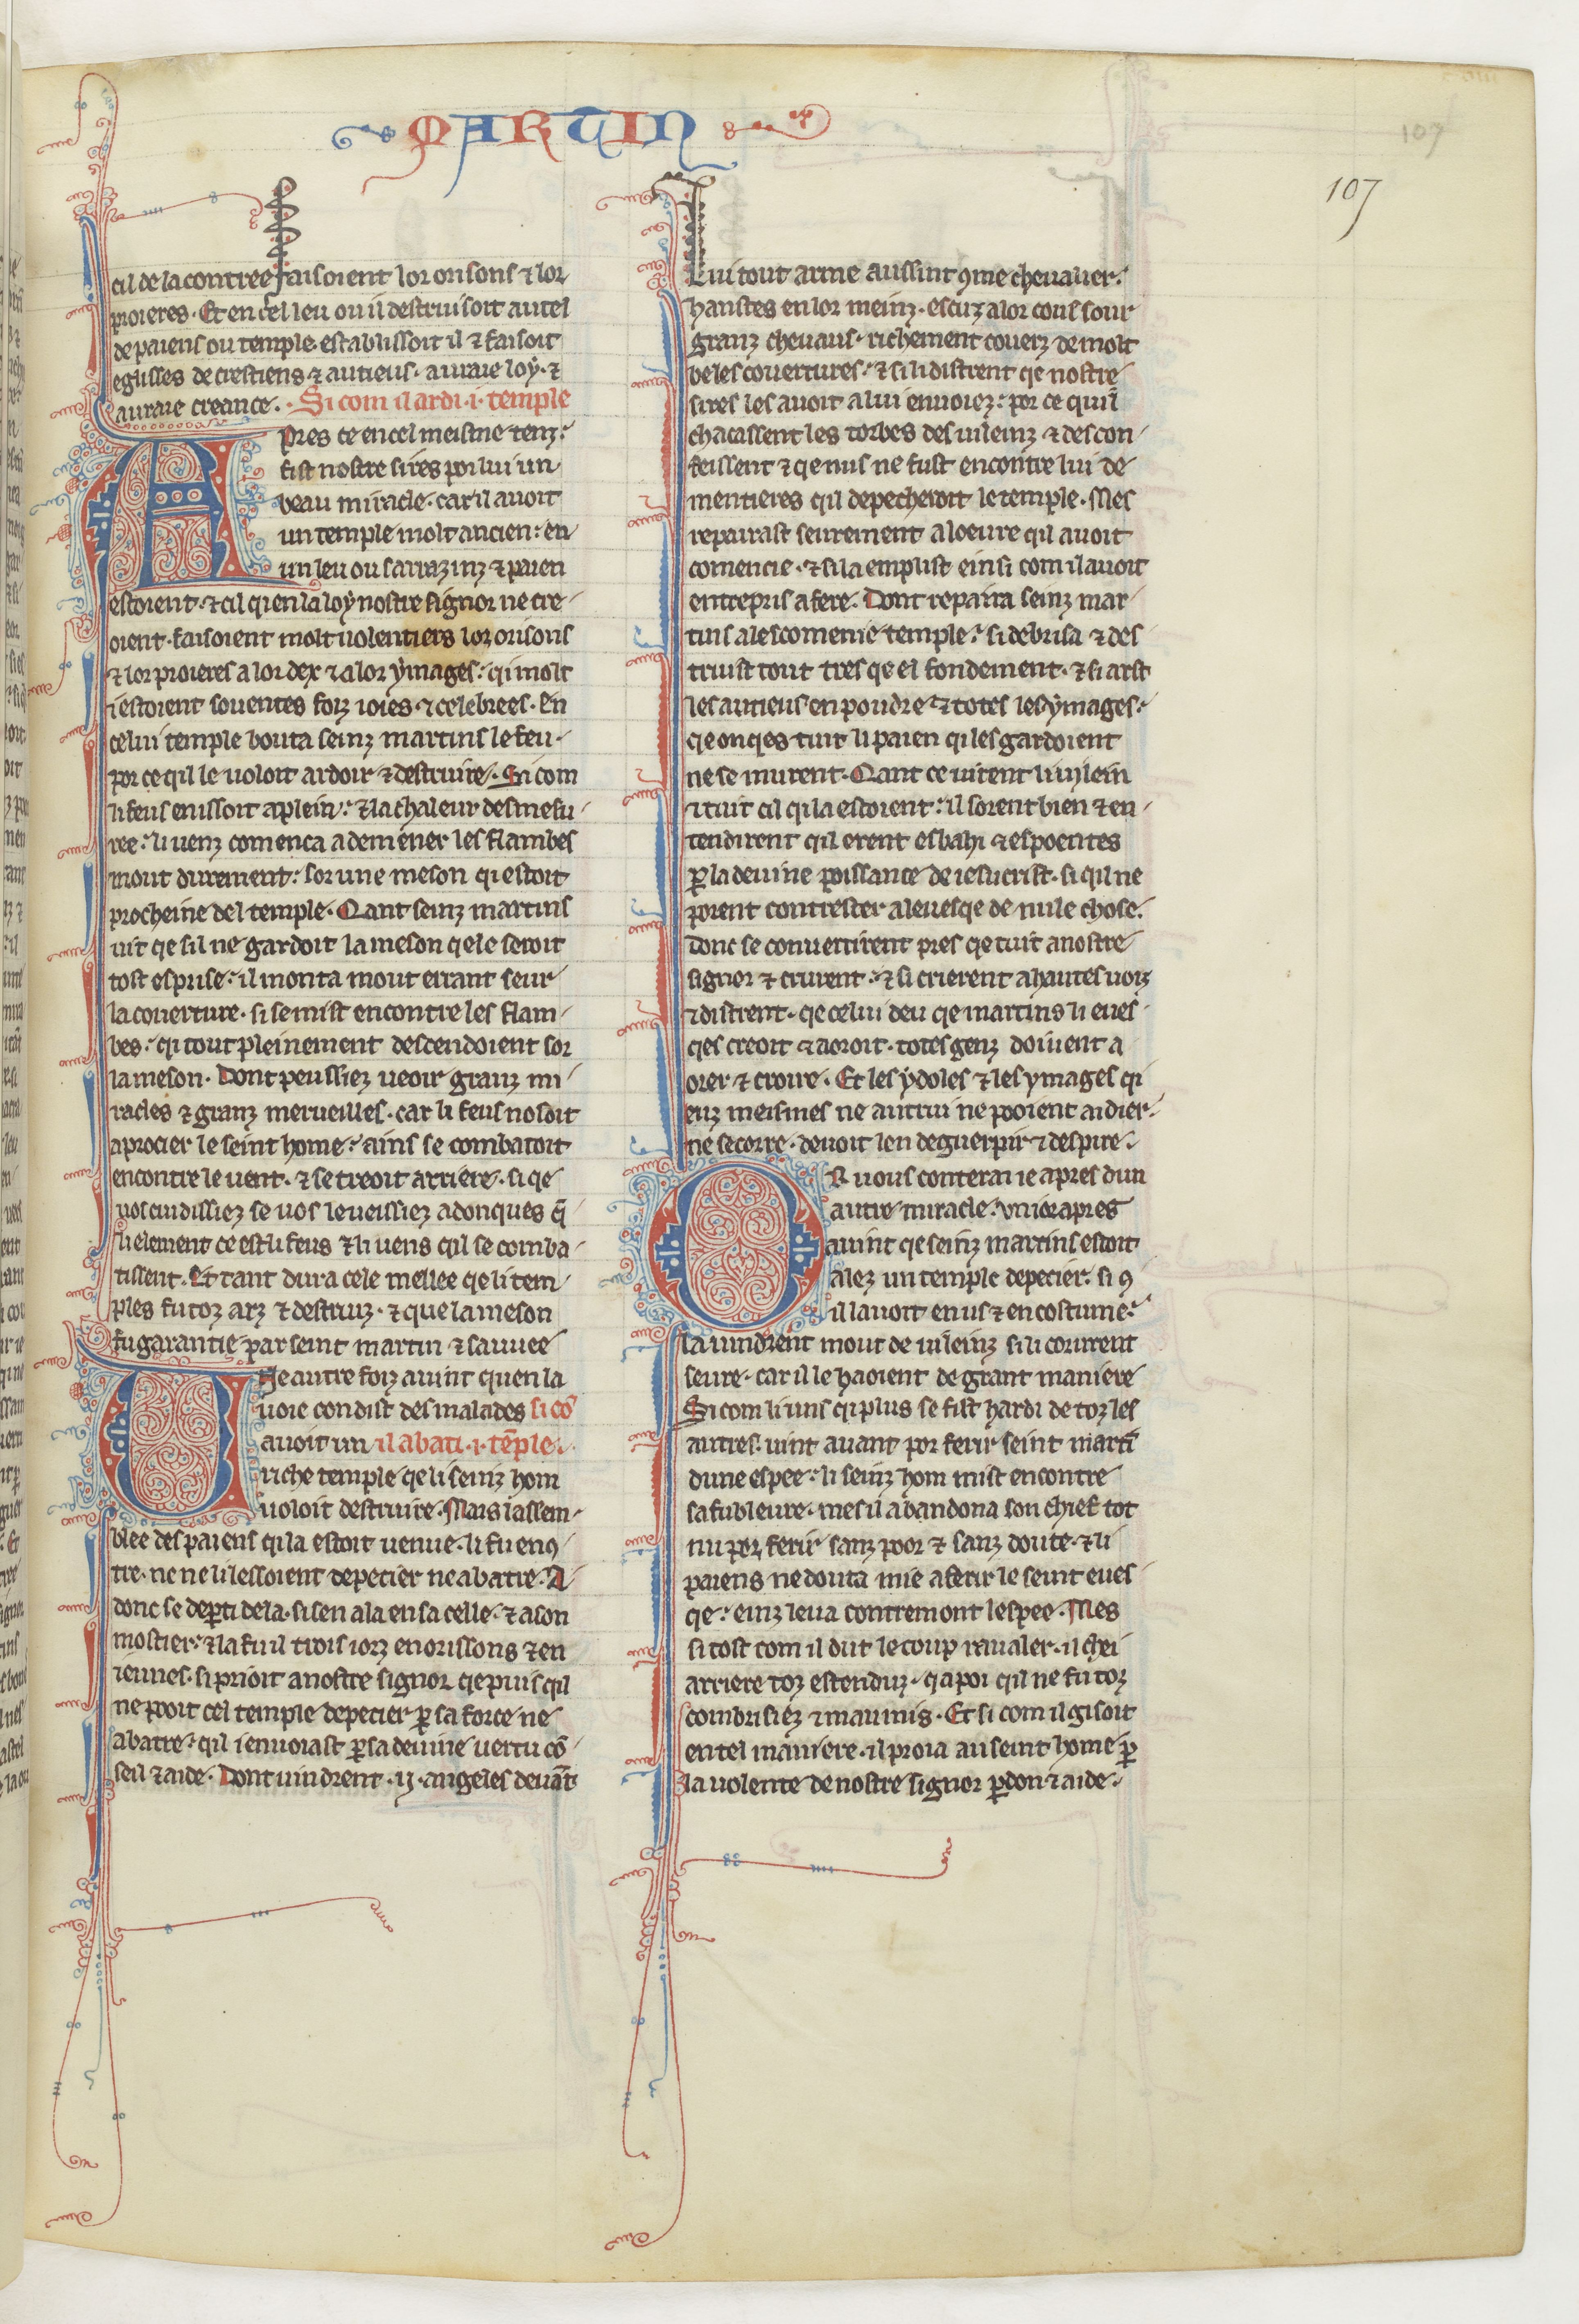 MARTIN
107
107
cil de la contree faisoient lor orisons ⁊ lor
proieres. Et en cel leu ou il destruisoit autel
de paiens ou temple. establissoit il ⁊ faisoit
eglisses de crestiens ⁊ autieus. a uraie loy. ⁊
a uraie creance. Si com il ardi .i. temple
Apres ce en cel meisme tenz.
fist nostre sires por lui un
beau miracle. car il auoit
un temple molt ancien. en
un leu ou sarrazinz ⁊ paien
estoient. ⁊ cil qi en la loy nostre signor ne cre-
oient. faisoient molt uolentiers lor orisons
⁊ lor proieres a lor dex ⁊ a lor ymages. qi molt
i estoient souentes foiz ioies ⁊ celebrees. En
celui temple bouta seinz martins le feu.
por ce qil le uoloit ardoir ⁊ destruire. Si com
li feus en issoit a plein. ⁊ la chaleur desmesu-
ree. li uenz comenca a demener les flambes
mout durement. sor une meson qi estoit
procheine del temple. Qant seinz martins
uit qe sil ne gardoit la meson qele seroit
tost esprise. il monta mout errant seur
la couerture. si se mist encontre les flam-
bes. qi tout pleinement descendoient sor
la meson. Dont peussiez ueoir granz mi-
racles ⁊ granz merueilles. car li feus nosoit
aprocier le seint home. ains se combatoit
encontre le uent. ⁊ se treoit arriere. si qe
uos cuidissiez se uos le ueissiez adonques q̄
li element ce est li feus ⁊ li uens qil se comba-
tissent. Et tant dura cele mellee qe li tem-
ples fu toz arz ⁊ destruiz. ⁊ que la meson
fu garantie par seint martin ⁊ sauuee
Une autre foiz auint quen la
uoie con dist des malades si cō
auoit un il abati .i. tēple.
riche temple qe li seinz hom
uoloit destruire. Mais lassem-
blee des paiens qi la estoit uenue. li fu enꝯ-
tre. ne ne li lessoient depecier ne abatre. A
donc se deꝑti de la. si sen ala en sa celle. ⁊ a son
mostier. ⁊ la fu il trois iorz en orissons ⁊ en
ieunes. si prioit a nostre signor qe puis qil
ne pooit cel temple depecier ꝑ sa force ne
abatre. qil i enuoiast ꝑ sa deuine uertu cō-
seil ⁊ aide. Dont uindrent .ij. angeles deuāt
Lui tout arme aussint ꝯme cheualier.
hanstes en lor meinz. escuz a lor cous sour
granz cheuaus. richement couerz de molt
beles couertures. ⁊ si li distrent qe nostre
sires les auoit a lui enuoiez. por ce quil
chacassent les torbes des uileinz ⁊ descon-
feissent ⁊ qe nus ne fust encontre lui de-
mentieres qil depecheroit le temple. Mes
repairast seurement a loeure qil auoit
comencie. ⁊ si la emplist einsi com il auoit
entrepris a fere. Dont repaira seinz mar-
tins a lescomenie temple. si debrisa ⁊ des-
truist tout tres qe el fondement. ⁊ si arst
les autieus en poudre ⁊ totes les ymages.
qe onqes tuit li paien qi les gardoient
ne se murent. Qant ce uirent li uilein
⁊ tuit cil qi la estoient. il sorent bien ⁊ en-
tendirent qil erent esbahi ⁊ espoentes
ꝑ la deuine poissance de iesucrist. si qil ne
porent contrester a leuesqe de nule chose.
donc se conuertirent pres qe tuit a nostre
signor ⁊ crurent. ⁊ si crierent a hautes uoiz
⁊ distrent. qe celui deu qe martins li eues-
qes creoit ⁊ aoroit. totes genz doiuent a
orer ⁊ croire. Et les ydoles ⁊ les ymages qi
euz meismes ne autrui ne pooient aidier.
ne secorre. deuoit len deguerpir ⁊ despire.
Or uous conterai ie apres dun
autre miracle. un ior apres
auint qe seinz martins estoit
alez un temple depecier. si ꝯ
il lauoit en us ⁊ en costume.
la uindrent mout de uileinz si li corurent
seure. car il le haoient de grant maniere
Si com li uns qi plus se fist hardi de toz les
autres. uint auant por ferir seint martī
dune espee. li seinz hom mist encontre
sa fubleure. mes il abandona son chief tot
nu por ferir sanz poor ⁊ sanz doute. ⁊ li
paiens ne douta mie a ferir le seint eues-
qe. einz leua contremont lespee. Mes
si tost com il dut le coup raualer. il chei
arriere toz estenduz. qa poi qil ne fu toz
combrisiez ⁊ maumis. Et si com il gisoit
en tel maniere. il proia au seint home ꝑ
la uolente de nostre signor ꝑdon ⁊ aide.